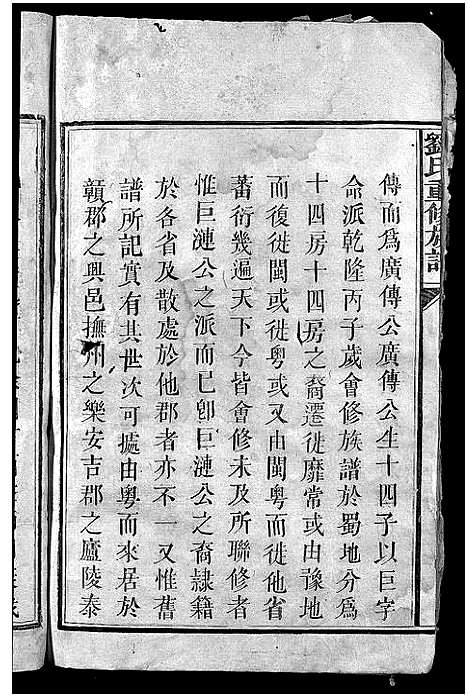 劉氏重修族譜
傳而爲廣傳公廣傳公生十四子以巨字
命派乾隆丙子歲會修族譜於蜀地分爲
十四房十四房之裔遷徙靡常或由豫地
而復徙閩或徙粵或又由閩粵而徙他省
蕃衍幾遍天下今皆會修未及所聯修者
惟巨漣公之派而已卽巨漣公之裔隷籍
於各省及散處於他郡者亦不一又惟舊
譜所記實有其世次可攄由粵而來居於
贛郡之興邑撫州之樂安吉郡之廬陵泰